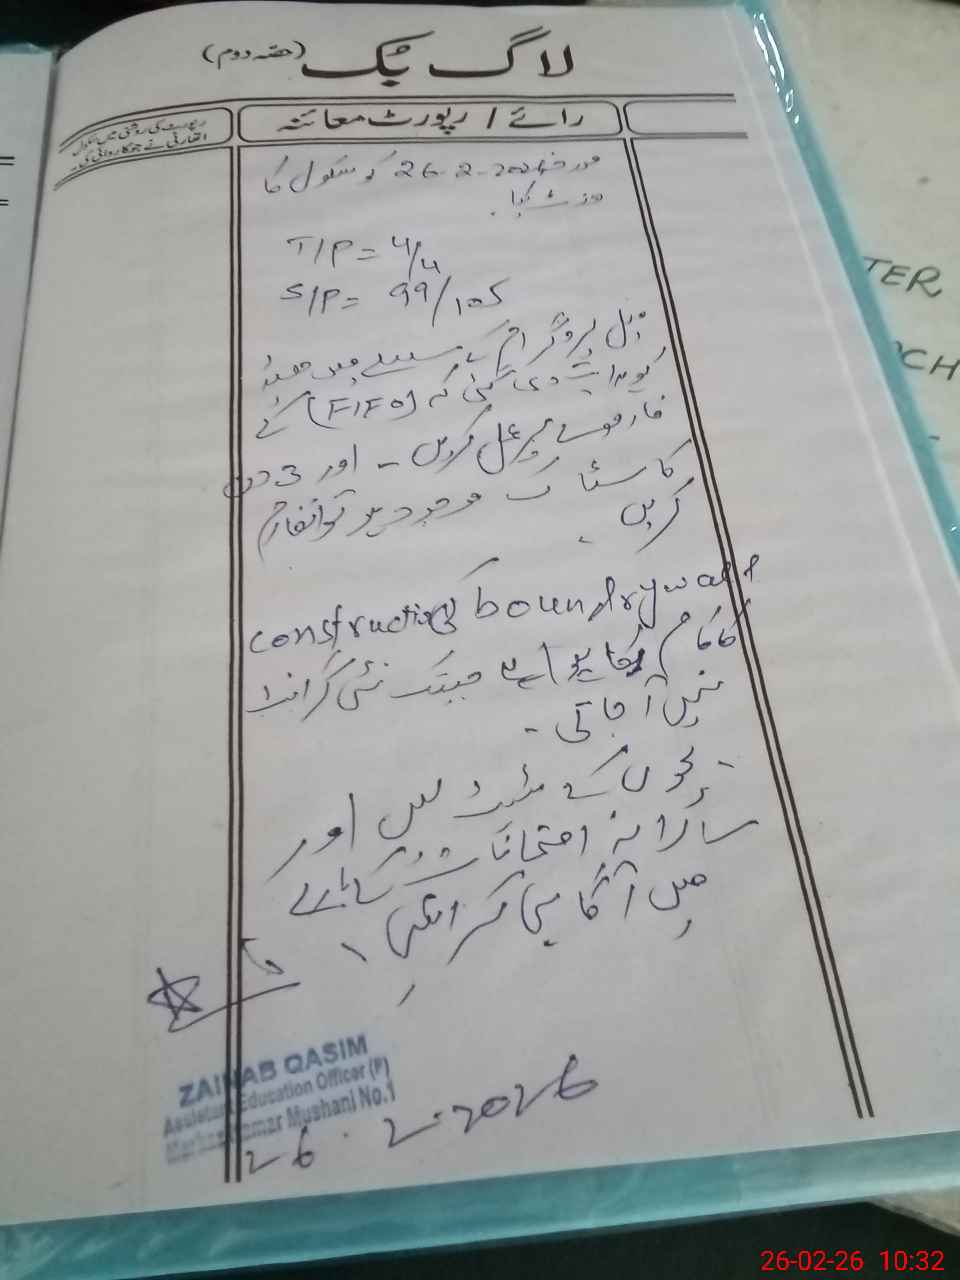 لاگ بک (حصہ دوم)
رائے / رپورٹ معائنہ
رپورٹ کی روشنی میں سکول
اتھارٹی نے جو کاروائی کی۔
مورخہ 26-2-2026 کو سکول کا
وزٹ کیا۔
T/P = 4/4
S/P = 99/105
میل پروگرام کے سلسلے میں ہیڈ
کو ہدایت دی گئی کہ (FIFO) کے
فارمولے پر عمل کریں - اور 3 دن
کا سٹاک موجود ہو تو انفارم
کریں
construction boundry wall
کا کام رکا ہوا ہے جبتک نئی گرانٹ
نہیں آ جاتی -
- بچوں کے ٹیسٹ لیں اور
سالانہ امتحانات کے بارے
میں آگاہی کرائیں
ZAINAB QASIM
Assistant Education Officer (F)
Markaz Mushani No.1
26-2-2026
TER
OCH
26-02-26 10:32